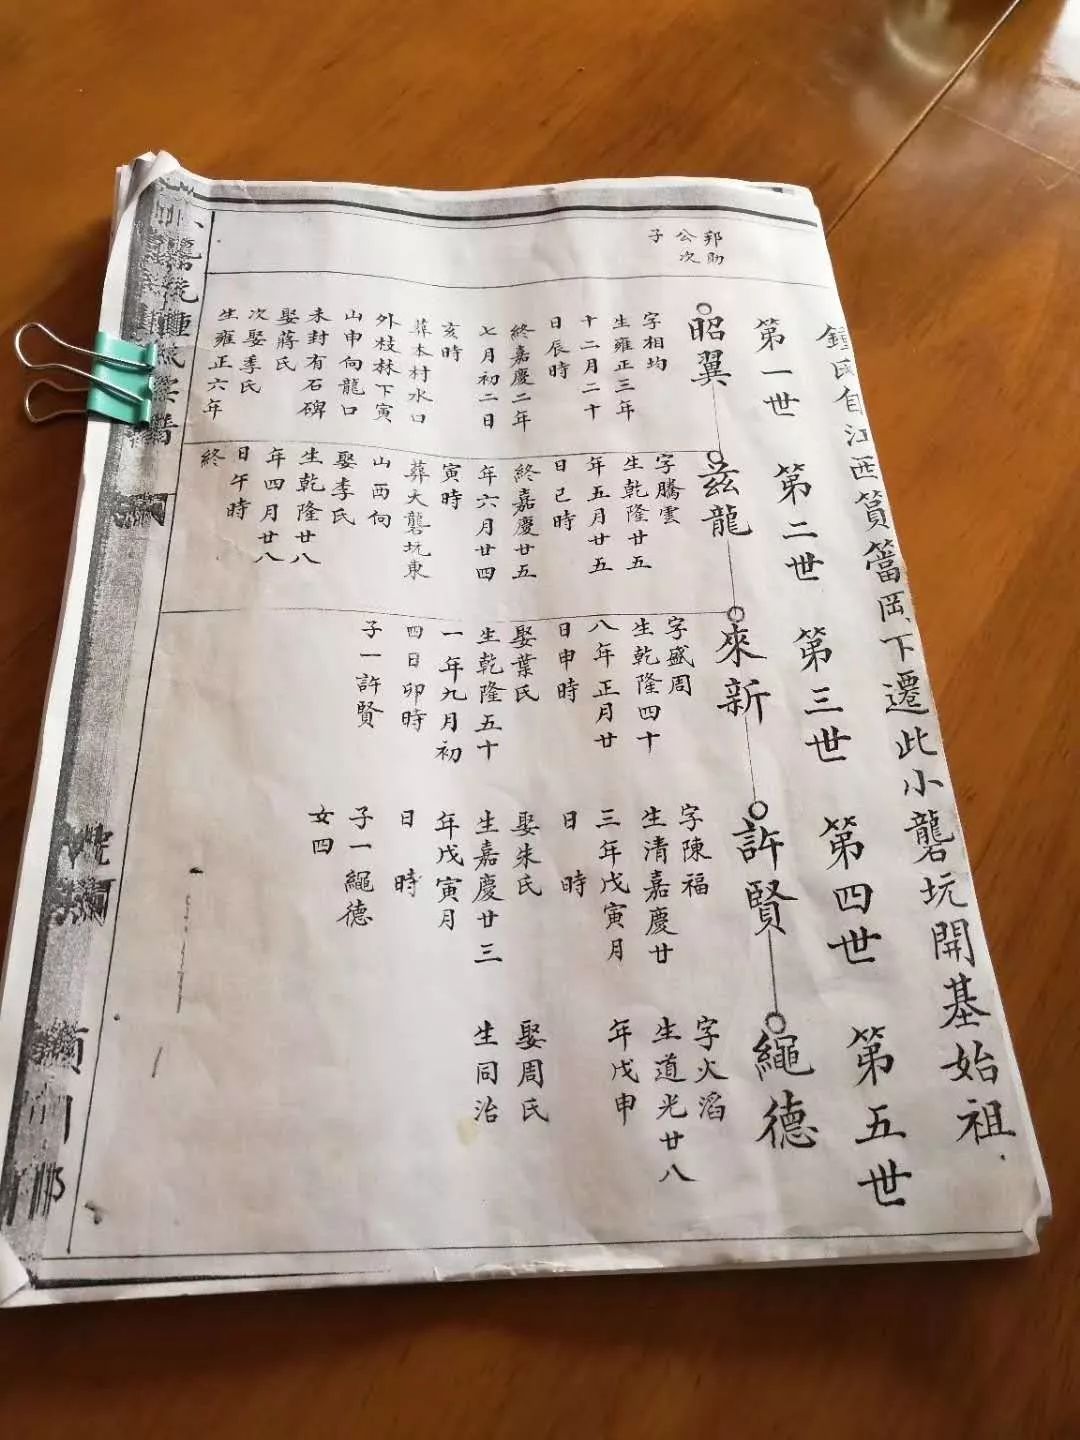 鍾氏自江西篔簹岡下遷此小礱坑開基始祖
第一世
第二世
第三世
第四世
第五世
邦勛
公次
子
昭翼
字相均
生雍正三年
十二月二十
日辰時
終嘉慶二年
七月初二日
亥時
葬本村水口
外枝林下寅
山申向龍口
未封有石碑
娶蔣氏
次娶季氏
生雍正六年
茲龍
字騰雲
生乾隆廿五
年五月廿五
日巳時
終嘉慶廿五
年六月廿四
寅時
葬大礱坑東
山西向
娶李氏
生乾隆廿八
年四月廿八
日午時
終
來新
字盛周
生乾隆四十
八年正月廿
日申時
娶葉氏
生乾隆五十
一年九月初
四日卯時
子一許賢
許賢
字陳福
生清嘉慶廿
三年戊寅月
日 時
娶朱氏
生嘉慶廿三
年戊寅月
日 時
子一繩德
女四
繩德
字火滔
生道光廿八
年戊申
娶周氏
生同治